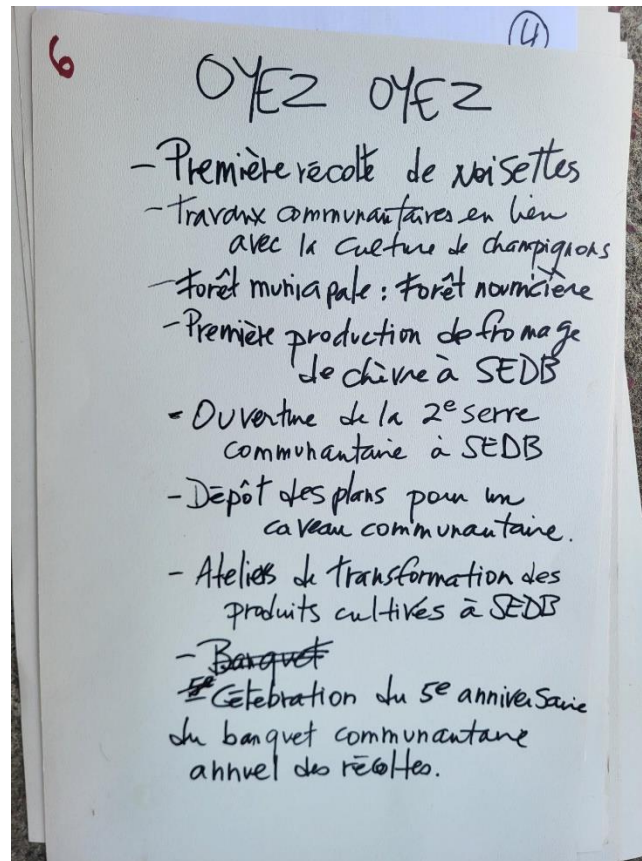 4
6
OYEZ OYEZ
- Première récolte de Noisettes
- Travaux communautaires en lien
avec la culture de champignons
- Forêt municipale : Forêt nourricière
- Première production de fromage
de chèvre à SEDB
- Ouverture de la 2e serre
communautaire à SEDB
- Dépôt des plans pour un
caveau communautaire.
- Ateliers de transformation des
produits cultivés à SEDB
- Banquet
5e Célébration du 5e anniversaire
du banquet communautaire
annuel des récoltes.